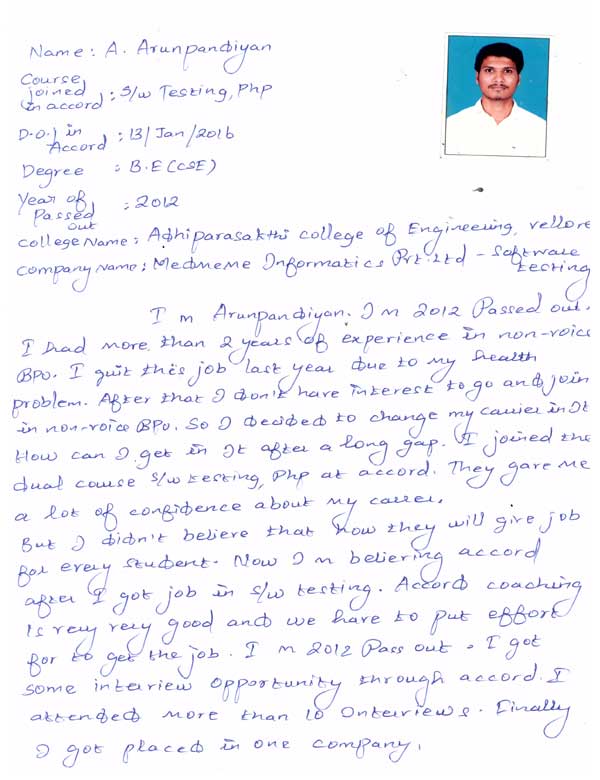 Name : A. Arunpandiyan
Course
joined
in accord : S/w Testing, Php
D.O.J in
Accord : 13/Jan/2016
Degree : B.E (CSE)
Year of
Passed
out : 2012
College Name : Adhiparasakthi college of Engineering, vellore
Company Name : Medmeme Informatics Pvt. Ltd - Software
testing
I m Arunpandiyan. I m 2012 Passed out.
I had more than 2 years of experience in non-voice
BPO. I quit this job last year due to my health
problem. After that I don't have interest to go and join
in non-voice BPO. So I decided to change my carrier in It
How can I get in It after a long gap. I joined the
dual course S/w testing, Php at accord. They gave me
a lot of confidence about my carrer.
But I didn't believe that how they will give job
for every student. Now I m believing accord
after I got job in S/w testing. Accord coaching
Is very very good and we have to put effort
for to get the job. I m 2012 Pass out. I got
some interview opportunity through accord. I
attended more than 10 Interviews. Finally
I got placed in one company.